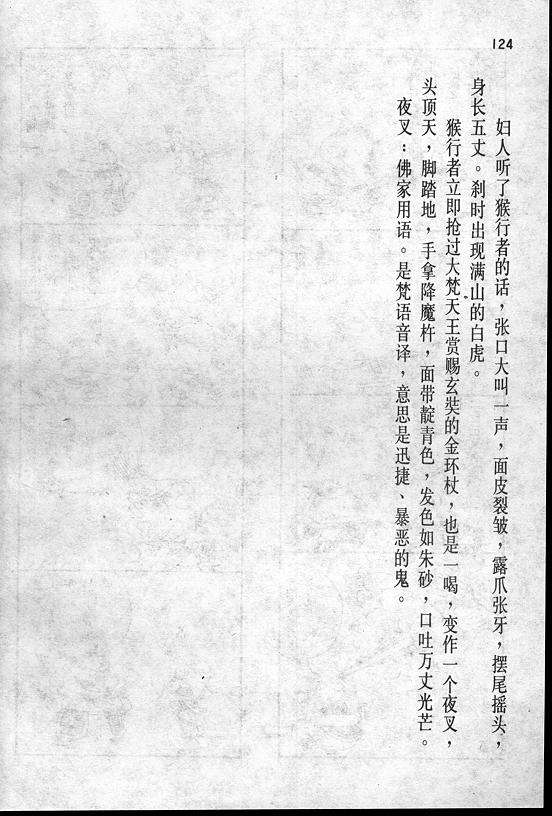 124
妇人听了猴行者的话，张口大叫一声，面皮裂皱，露爪张牙，摆尾摇头，
身长五丈。刹时出现满山的白虎。
猴行者立即抢过大梵天王赏赐玄奘的金环杖，也是一喝，变作一个夜叉，
头顶天，脚踏地，手拿降魔杵，面带靛青色，发色如朱砂，口吐万丈光芒。
夜叉：佛家用语。是梵语音译，意思是迅捷、暴恶的鬼。